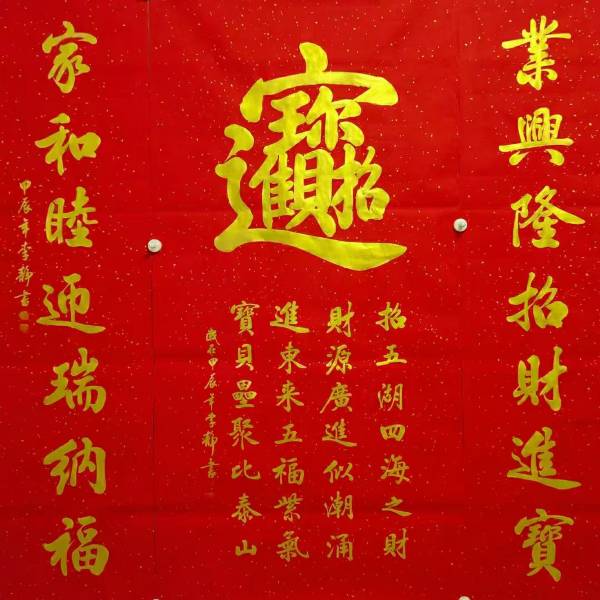 業興隆招財進寶
招財進寶
招五湖四海之財
財源廣進似潮涌
進東来五福紫氣
寶貝壘聚比泰山
歲在甲辰年李靜書
家和睦迎瑞納福
甲辰年李靜書